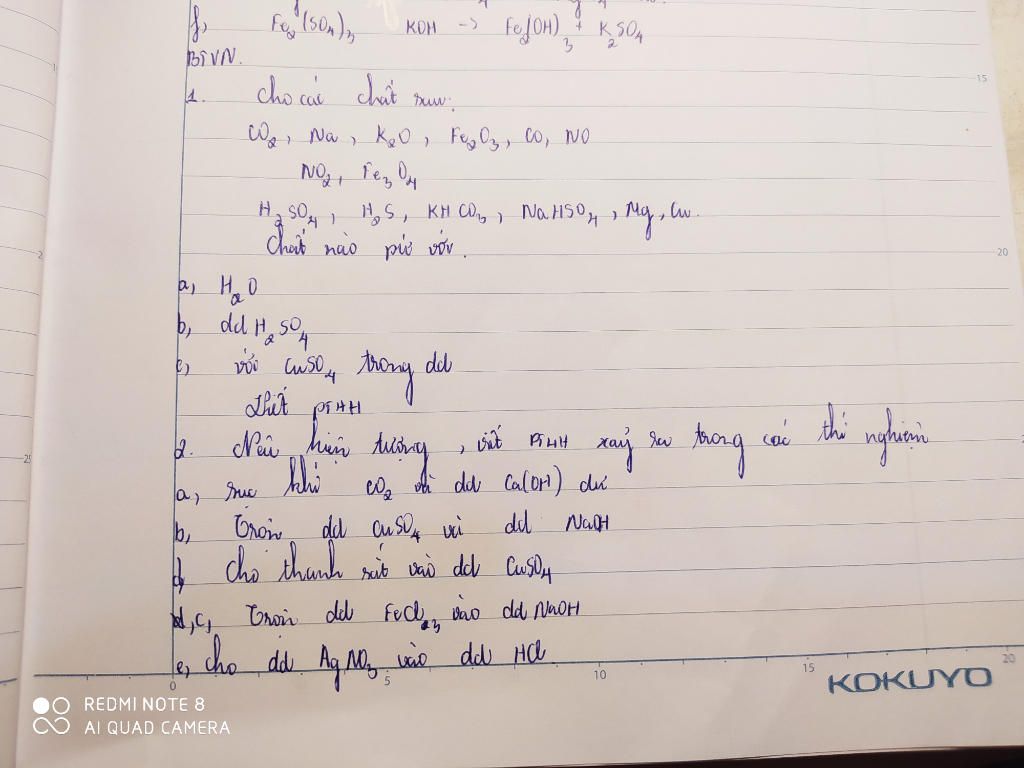 f, Fe₂(SO₄)₃ KOH -> Fe₂(OH)₃ + K₂SO₄
BTVN.
15
1. Cho các chất sau:
CO₂, Na, K₂O, Fe₂O₃, CO, NO
NO₂, Fe₃O₄
H₂SO₄, H₂S, KHCO₃, NaHSO₄, Mg, Cu.
Chất nào pứ với.
20
a, H₂O
b, dd H₂SO₄
c, với CuSO₄ trong dd
Viết PTHH
2. Nêu hiện tượng, viết PTHH xảy ra trong các thí nghiệm
a, sục khí CO₂ và dd Ca(OH) dư
b, Trộn dd CuSO₄ và dd NaOH
Cho thanh sắt vào dd CuSO₄
d, c, Trộn dd FeCl₃ vào dd NaOH
e, cho dd AgNO₃ vào dd HCl
0 5 10 15 20
KOKUYO
REDMI NOTE 8
AI QUAD CAMERA